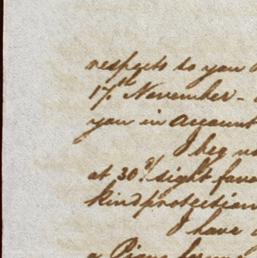 respects to you
17th November -
you in account
I beg
at 30 d/ sight
kind protection
I have
a